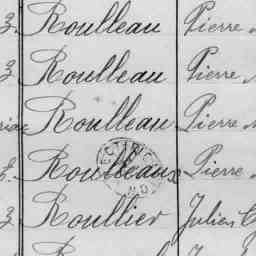 3. Roulleau Pierre
3 Roulleau Pierre
Roulleau Pierre
Roulleaux Pierre
3 Roullier Julien